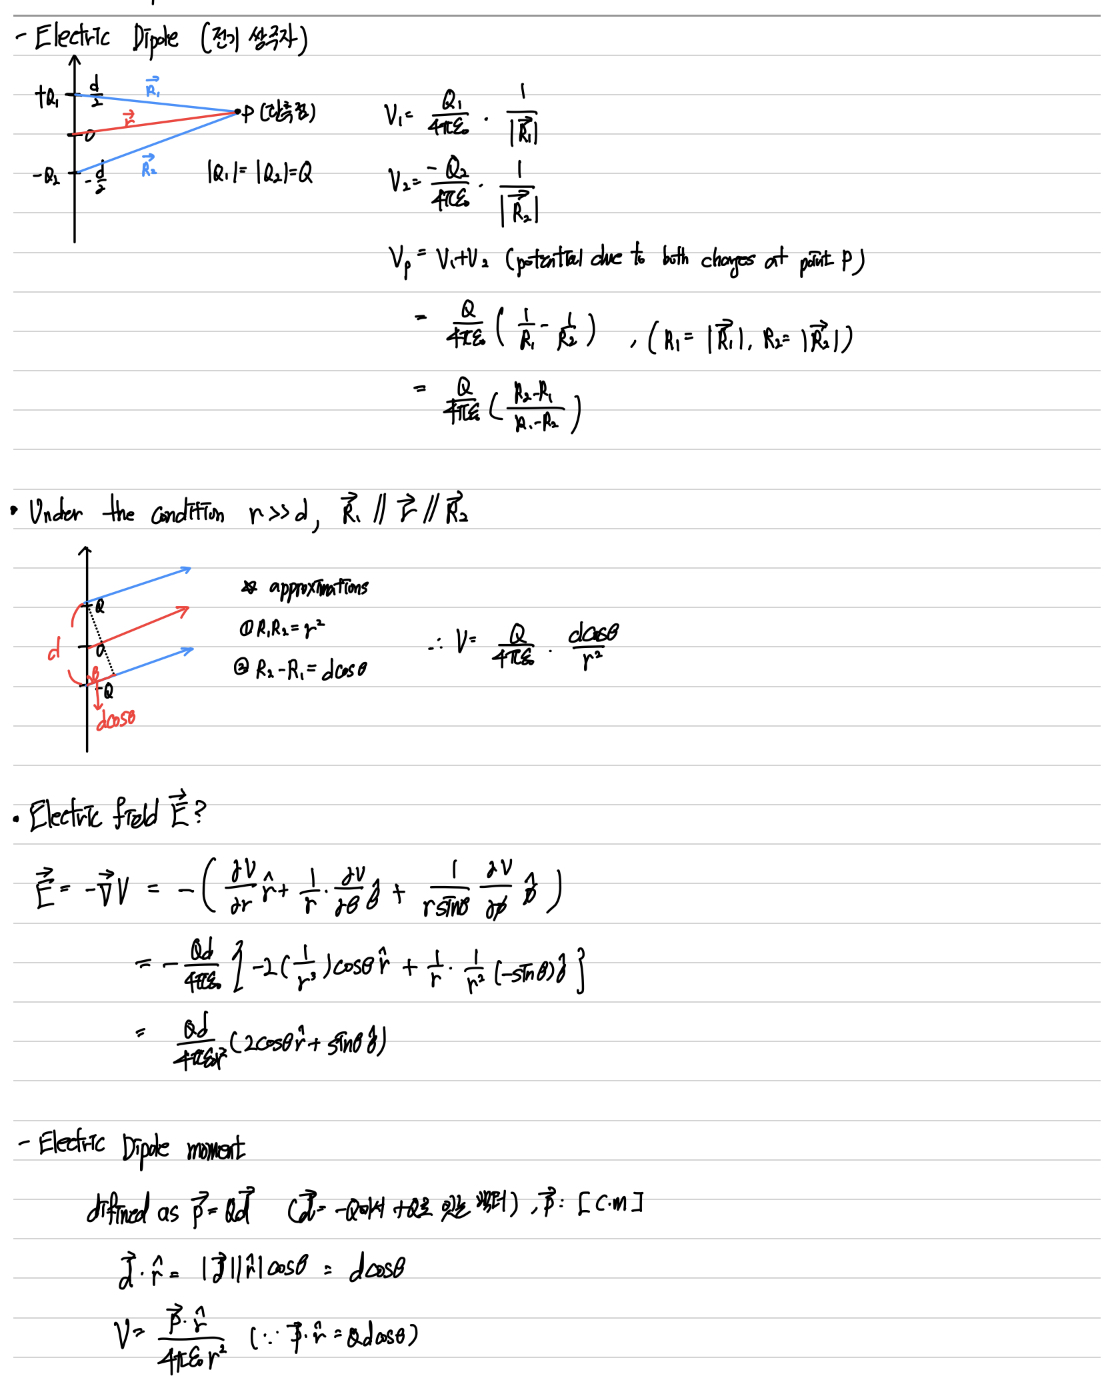 - Electric Dipole (전기 쌍극자)
+Q₁ d/2 R⃗₁
r⃗ P (관측점)
0
-Q₂ -d/2 R⃗₂ |Q₁| = |Q₂| = Q
V₁ = Q₁/4πε₀ · 1/|R⃗₁|
V₂ = -Q₂/4πε₀ · 1/|R⃗₂|
Vp = V₁+V₂ (potential due to both charges at point P)
= Q/4πε₀ ( 1/R₁ - 1/R₂ ) , ( R₁ = |R⃗₁|, R₂ = |R⃗₂| )
= Q/4πε₀ ( R₂-R₁ / R₁·R₂ )
• Under the condition r >> d, R⃗₁ // r⃗ // R⃗₂
Q
d 0
θ -Q
dcosθ
※ approximations
① R₁R₂ = r²
② R₂ - R₁ = dcosθ
∴ V = Q/4πε₀ · dcosθ/r²
• Electric field E⃗ ?
E⃗ = -∇⃗V = -( ∂V/∂r r̂ + 1/r · ∂V/∂θ θ̂ + 1/rsinθ ∂V/∂ϕ ϕ̂ )
= - Qd/4πε₀ { -2(1/r³)cosθ r̂ + 1/r · 1/r² (-sinθ) θ̂ }
= Qd/4πε₀r³ (2cosθ r̂ + sinθ θ̂)
- Electric Dipole moment
difined as p⃗ = Qd⃗ (d⃗ = -Q에서 +Q로 잇는 벡터) , p⃗ : [C·m]
d⃗ · r̂ = |d⃗||r̂|cosθ = dcosθ
V = p⃗·r̂ / 4πε₀r² (∵ p⃗·r̂ = Qdcosθ)